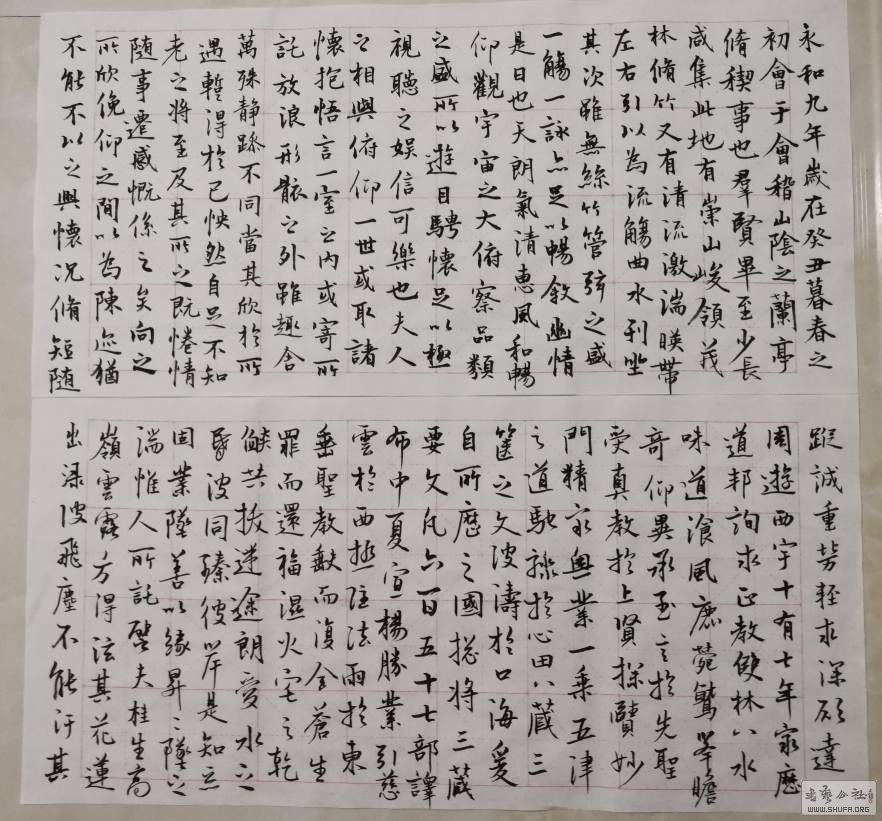 永和九年歲在癸丑暮春之
初會于會稽山陰之蘭亭
脩稧事也羣賢畢至少長
咸集此地有崇山峻領茂
林脩竹又有清流激湍暎帶
左右引以為流觴曲水列坐
其次雖無絲竹管弦之盛
一觴一詠亦足以暢敘幽情
是日也天朗氣清惠風和暢
仰觀宇宙之大俯察品類
之盛所以遊目騁懷足以極
視聽之娛信可樂也夫人
之相與俯仰一世或取諸
懷抱悟言一室之內或寄所
託放浪形骸之外雖趣舍
萬殊静躁不同當其欣於所
遇蹔得於己怏然自足不知
老之將至及其所之既惓情
隨事遷感慨係之矣向之
所欣俛仰之間以為陳迹猶
不能不以之興懷況脩短隨
蹤誠重勞輕求深願達
周遊西宇十有七年窮歷
道邦詢求正教雙林八水
味道湌風鹿菀鷲峯瞻
奇仰異承至言於先聖
受真教於上賢探賾妙
門精窮奧業一乘五津
之道馳驟於心田八藏三
篋之文波濤於口海爰
自所歷之國捴將三藏
要文凡六百五十七部譯
布中夏宣楊勝業引慈
雲於西極注法雨於東
垂聖教缺而復全蒼生
罪而還福濕火宅之乾
燄共拔迷途朗愛水之
昏波同臻彼岸是知惡
因業墜善以緣昇昇墜之
湍惟人所託譬夫桂生高
嶺雲露方得泫其花蓮
出淥波飛塵不能汙其
WWW.SHUFA.ORG